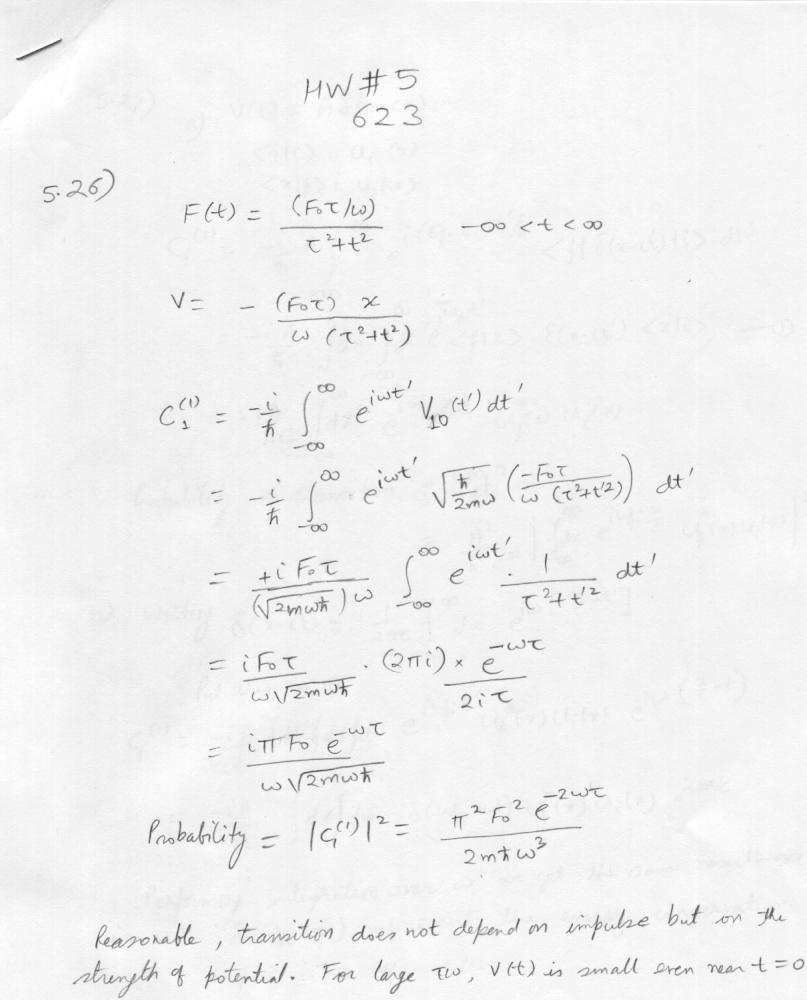 HW # 5
623
5.26)
F(t) = (F₀τ/ω) / (τ²+t²)   -∞ < t < ∞
V = - (F₀τ) x / ω (τ²+t²)
C₁⁽¹⁾ = -i/ħ ∫_{-∞}^{∞} e^{iωt'} V₁₀(t') dt'
= -i/ħ ∫_{-∞}^{∞} e^{iωt'} √(ħ/2mω) (-F₀τ / ω (τ²+t'²)) dt'
= +i F₀τ / (√2mωħ) ω ∫_{-∞}^{∞} e^{iωt'} · 1/(τ²+t'²) dt'
= i F₀τ / ω√2mωħ · (2πi) × e^{-ωτ} / 2iτ
= iπ F₀ e^{-ωτ} / ω√2mωħ
Probability = |C₁⁽¹⁾|² = π² F₀² e^{-2ωτ} / 2mħω³
Reasonable, transition does not depend on impulse but on the
strength of potential. For large τω, V(t) is small even near t = 0